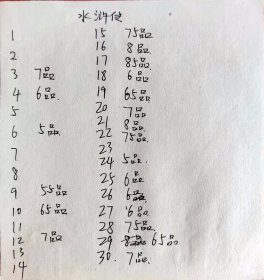 水浒传
1
2
3 7品
4 6品.
5
6 5品.
7
8
9 55品
10 65品
11
12 7品
13
14
15 75品
16 8品
17 85品
18 6品
19 65品
20 7品
21 8品
22 75品
23
24 5品
25 6品
26 6品
27 6品
28 75品
29 65品
30. 7品